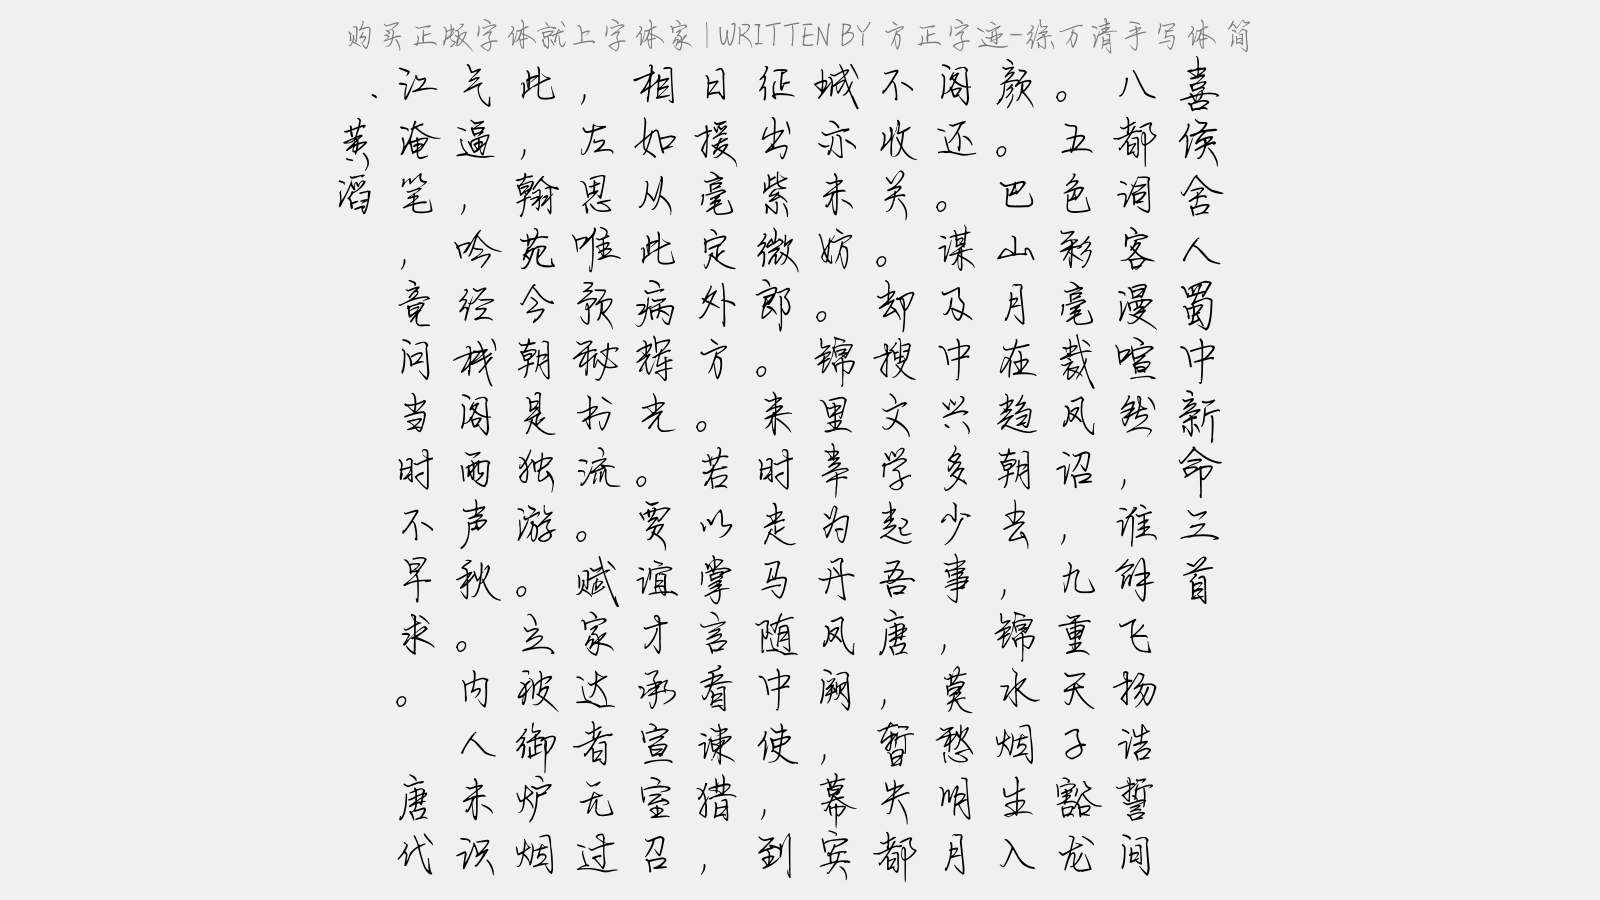 购买正版字体就上字体家 | WRITTEN BY 方正字迹-徐万清手写体 简
喜侯舍人蜀中新命三首
八都词客漫喧然，谁解飞扬诰誓间
。五色彩毫裁凤诏，九重天子豁龙
颜。巴山月在趋朝去，锦水烟生入
阁还。谋及中兴多少事，莫愁明月
不收关。却搜文学起吾唐，暂失都
城亦未妨。锦里幸为丹凤阙，幕宾
征出紫微郎。来时走马随中使，到
日援毫定外方。若以掌言看谏猎，
相如从此病辉光。贾谊才承宣室召
，左思唯预秘书流。赋家达者无过
此，翰苑今朝是独游。立被御炉烟
气逼，吟经栈阁雨声秋。内人未识
江淹笔，竟问当时不早求。 唐代
、黄滔